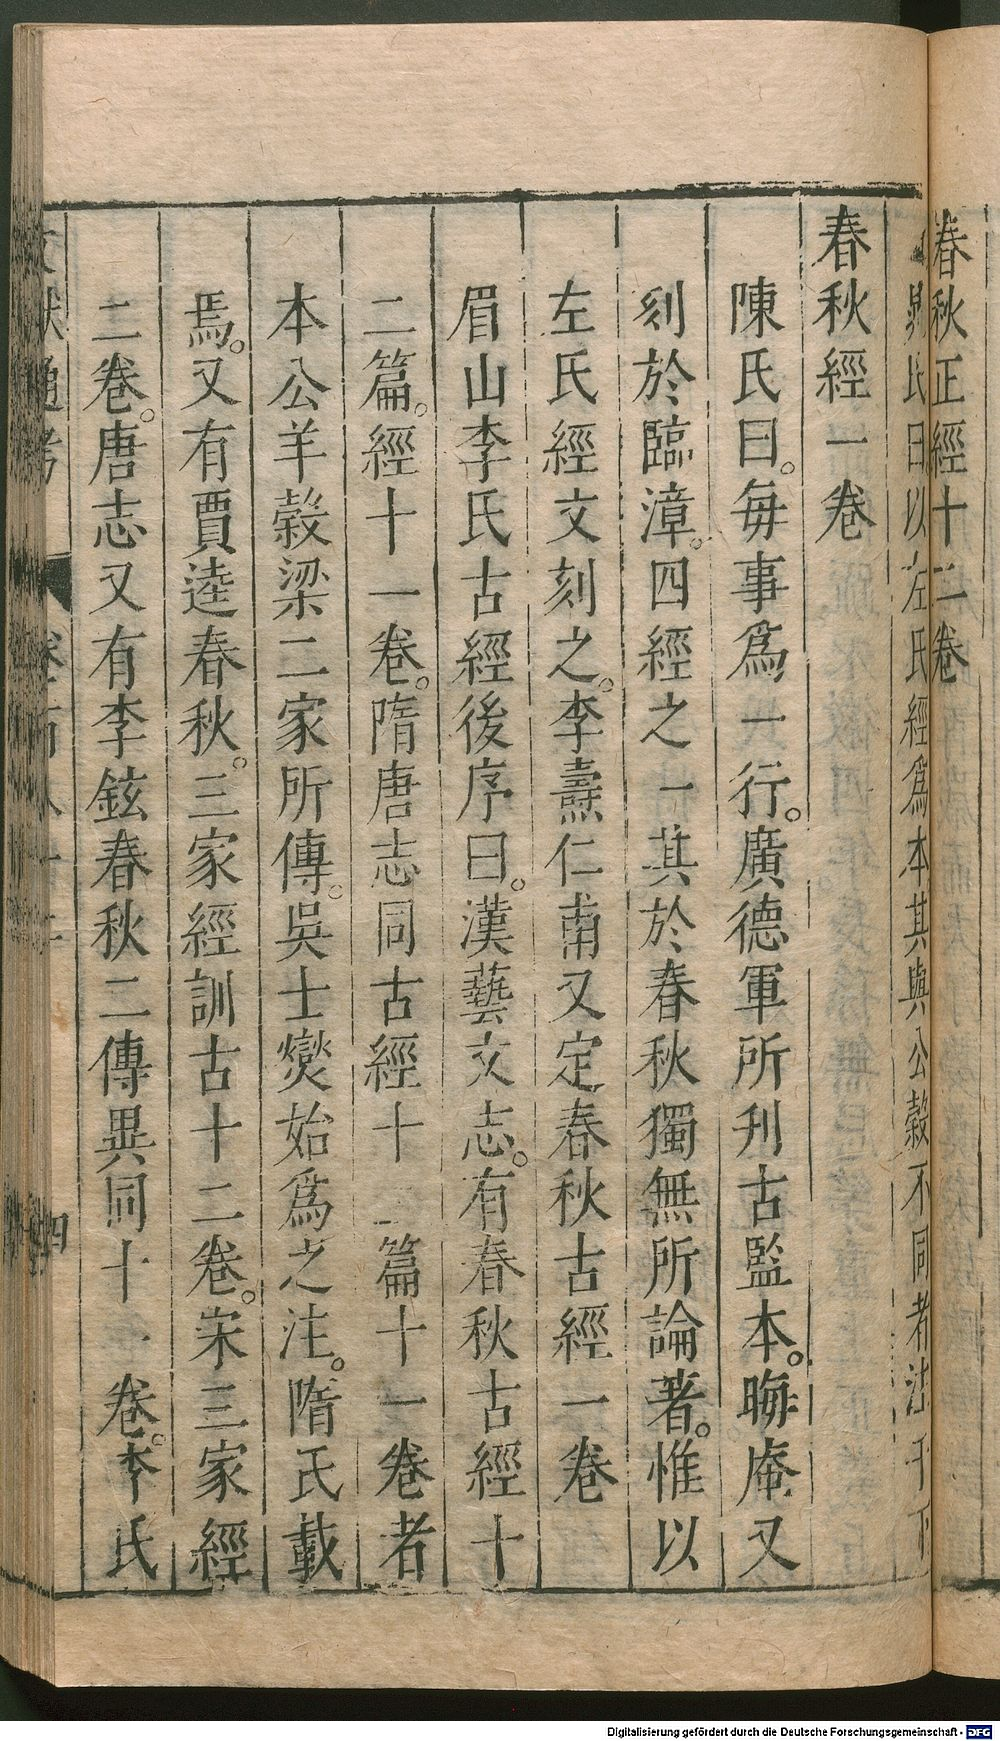 春秋正經十二卷
鼂氏曰以左氏經為本其與公穀不同者注于下
春秋經一卷
陳氏曰。每事為一行。廣德軍所刋古監本。晦庵又
刻於臨漳。四經之一其於春秋獨無所論著。惟以
左氏經文刻之。李燾仁甫又定春秋古經一卷
眉山李氏古經後序曰。漢藝文志。有春秋古經十
二篇。經十一卷。隋唐志同古經十二篇十一卷者
本公羊穀梁二家所傳。吳士燮始為之注。隋氏載
焉。又有賈逵春秋。三家經訓古十二卷。宋三家經
二卷。唐志又有李鉉春秋二傳異同十一卷。李氏
文獻通考
四
Digitalisierung gefördert durch die Deutsche Forschungsgemeinschaft - DFG